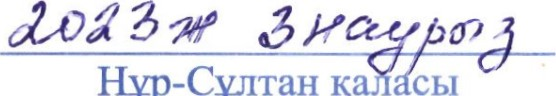 2023ж 3 наурыз
Нұр-Сұлтан қаласы